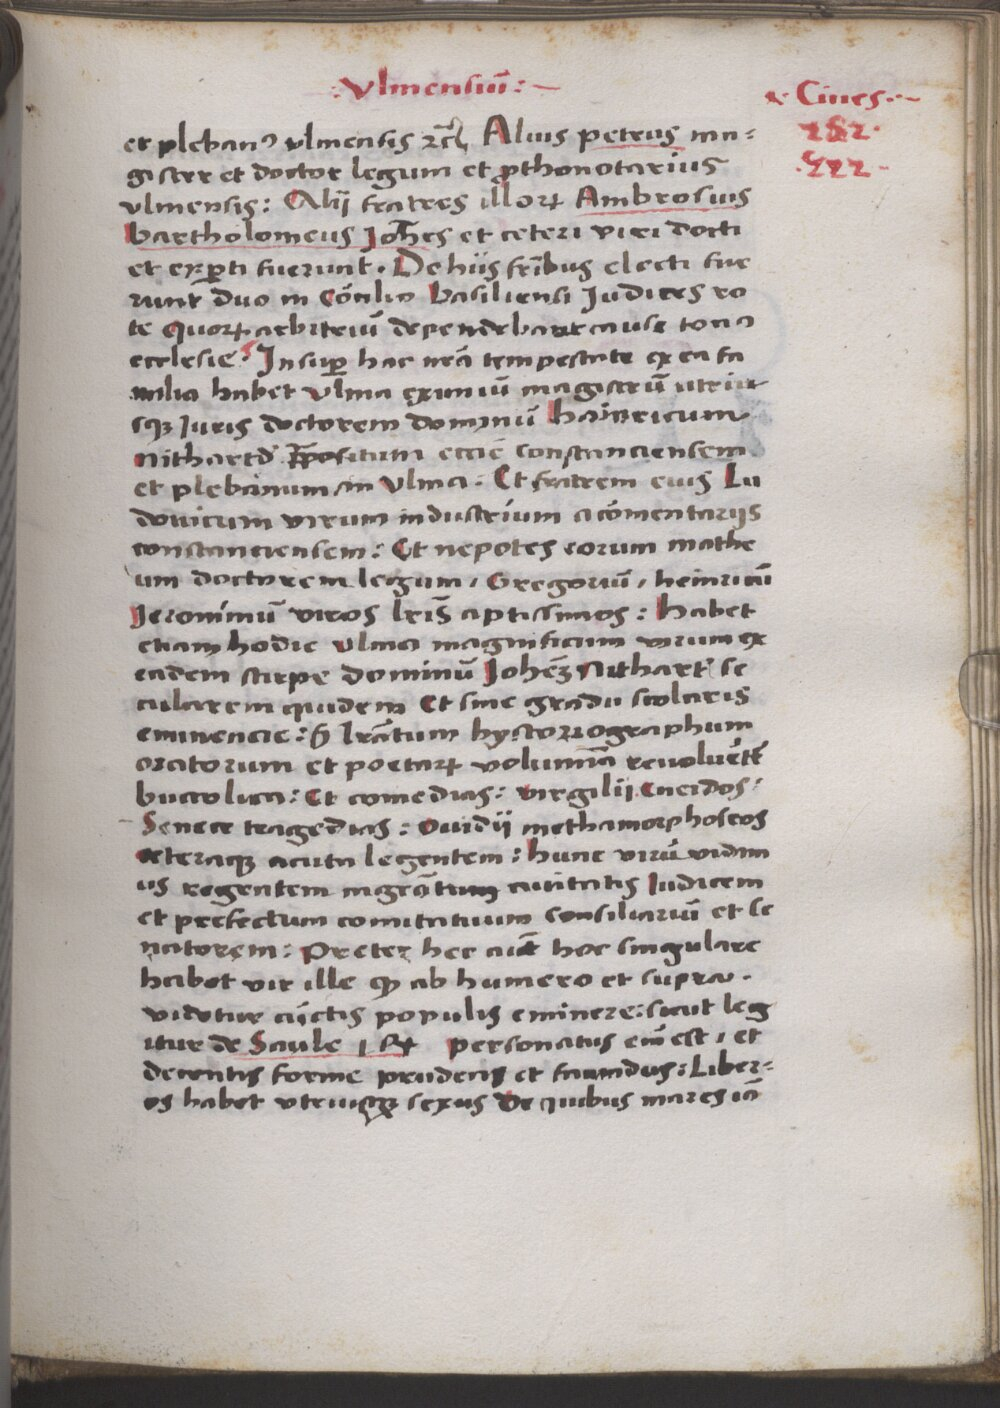 : Vlmensiū : —
Ciues .—
282 .
.222 —
et plebanꝰ vlmensis ꝛcͣ Alius petrus ma=
gister et doctor legum et ꝓthonotarius
vlmensis : Alij fratres illorꝝ Ambrosius
bartholomeus Joh̄es et ceteri viri docti
et exꝑti fuerunt . De hijs fr̄ibus electi fue
runt duo in Cōcilio basiliensi Judices ro
te quorꝝ arbitriū dependebant cause tociꝰ
ecclesie . Insuꝑ hac nr̄a tempestate ex ea fa
milia habet vlma eximiū magistrū utriu
sqꝫ Juris doctorem dominū hainricum
nithartd p̄positum eccīe constanciensem
et plebanum in vlma . Et fratrem eius Lu
douicum virum industrium a cōmentarijs
constanciensem : Et nepotes eorum mathe
um doctorem legum , Gregoriū , heinricū
Jeronimū viros lrīs aptissimos : habet
etiam hodie vlma magnificum virum ex
eadem stirpe dominū Joheꝫ Nithart se
cularem quidem Et sine gradu scolaris
eminencie : sꝫ lr̄atum hystoriographum
oratorum et poetarꝝ volumīa reuoluētē
buccolica : Et comedias : virgilii Eneidos :
Senece tragedias : Ouidii methamorphoseos
ceteraqꝫ acuta legentem : hunc virū vidim
us regentem magrātum ciuitatis Judicem
et prefectum comitatuum consiliariū et se
natorem : Preter hec aūt hoc singulare
habet vir ille qꝫ ab humero et supra .
videtur cūctis populis eminere : sicut leg
itur de Saule 1 Rꝝ personatus eīm est , et
decentis forme prudens et facundus : Liber=
os habet vtriusqꝫ sexus De quibus mares iā